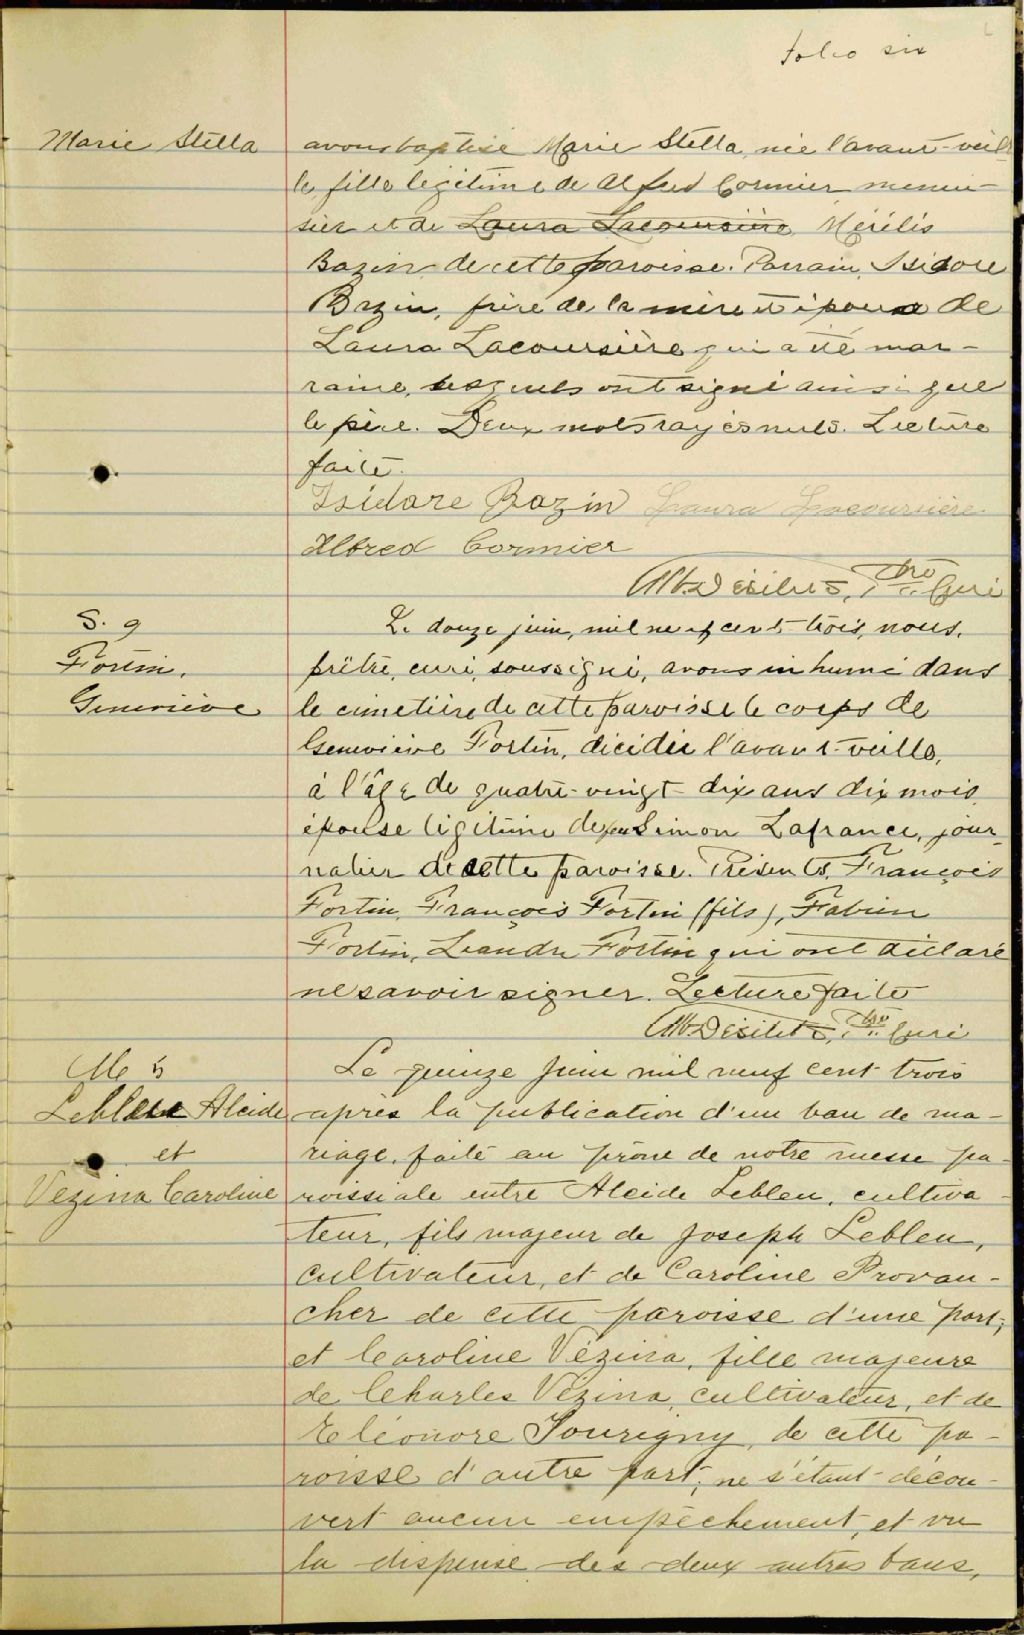 folio six
Marie Stella
avons baptisé Marie Stella, née l'avant-veil-
le, fille légitime de Alfred Cormier menui-
sier et de Laura Lacoursière Mérélis
Bazin de cette paroisse. Parrain, Isidore
Bazin, frère de la mère et époux de
Laura Lacoursière qui a été mar-
raine, lesquels ont signé ainsi que
le père. Deux mots rayés nuls. Lecture
faite.
Isidore Bazin Laura Lacoursière
Alfred Cormier
Alb. Désilets, Ptre Curé
S. 9
Fortin,
Geneviève
Le douze juin, mil neuf cent trois, nous,
prêtre, curé, soussigné, avons inhumé dans
le cimetière de cette paroisse le corps de
Geneviève Fortin, décédée l'avant-veille,
à l'âge de quatre-vingt-dix ans dix mois,
épouse légitime de feu Simon Lafrance, jour-
nalier de cette paroisse. Présents, François
Fortin, François Fortin (fils), Fabien
Fortin, Léandre Fortin qui ont déclaré
ne savoir signer. Lecture faite
Alb. Désilets, Ptre Curé
M 5
Lebleu Alcide
et
Vézina Caroline
Le quinze Juin mil neuf cent trois
après la publication d'un ban de ma-
riage, faite au prône de notre messe pa-
roissiale entre Alcide Lebleu, cultiva-
teur, fils majeur de Joseph Lebleu,
cultivateur, et de Caroline Provan-
cher de cette paroisse d'une part;
et Caroline Vézina, fille majeure
de Charles Vézina, cultivateur, et de
Eléonore Tourigny, de cette pa-
roisse d'autre part; ne s'étant décou-
vert aucun empêchement, et vu
la dispense des deux autres bans,